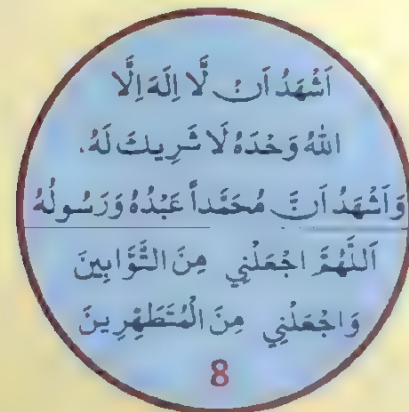 اَشْهَدُ اَنْ لَّا اِلٰهَ اِلَّا
اللهُ وَحْدَهُ لَا شَرِيكَ لَهُ،
وَاَشْهَدُ اَنَّ مُحَمَّداً عَبْدُهُ وَرَسُولُهُ
اَللّٰهُمَّ اجْعَلْنِي مِنَ التَّوَّابِينَ
وَاجْعَلْنِي مِنَ الْمُتَطَهِّرِينَ
8